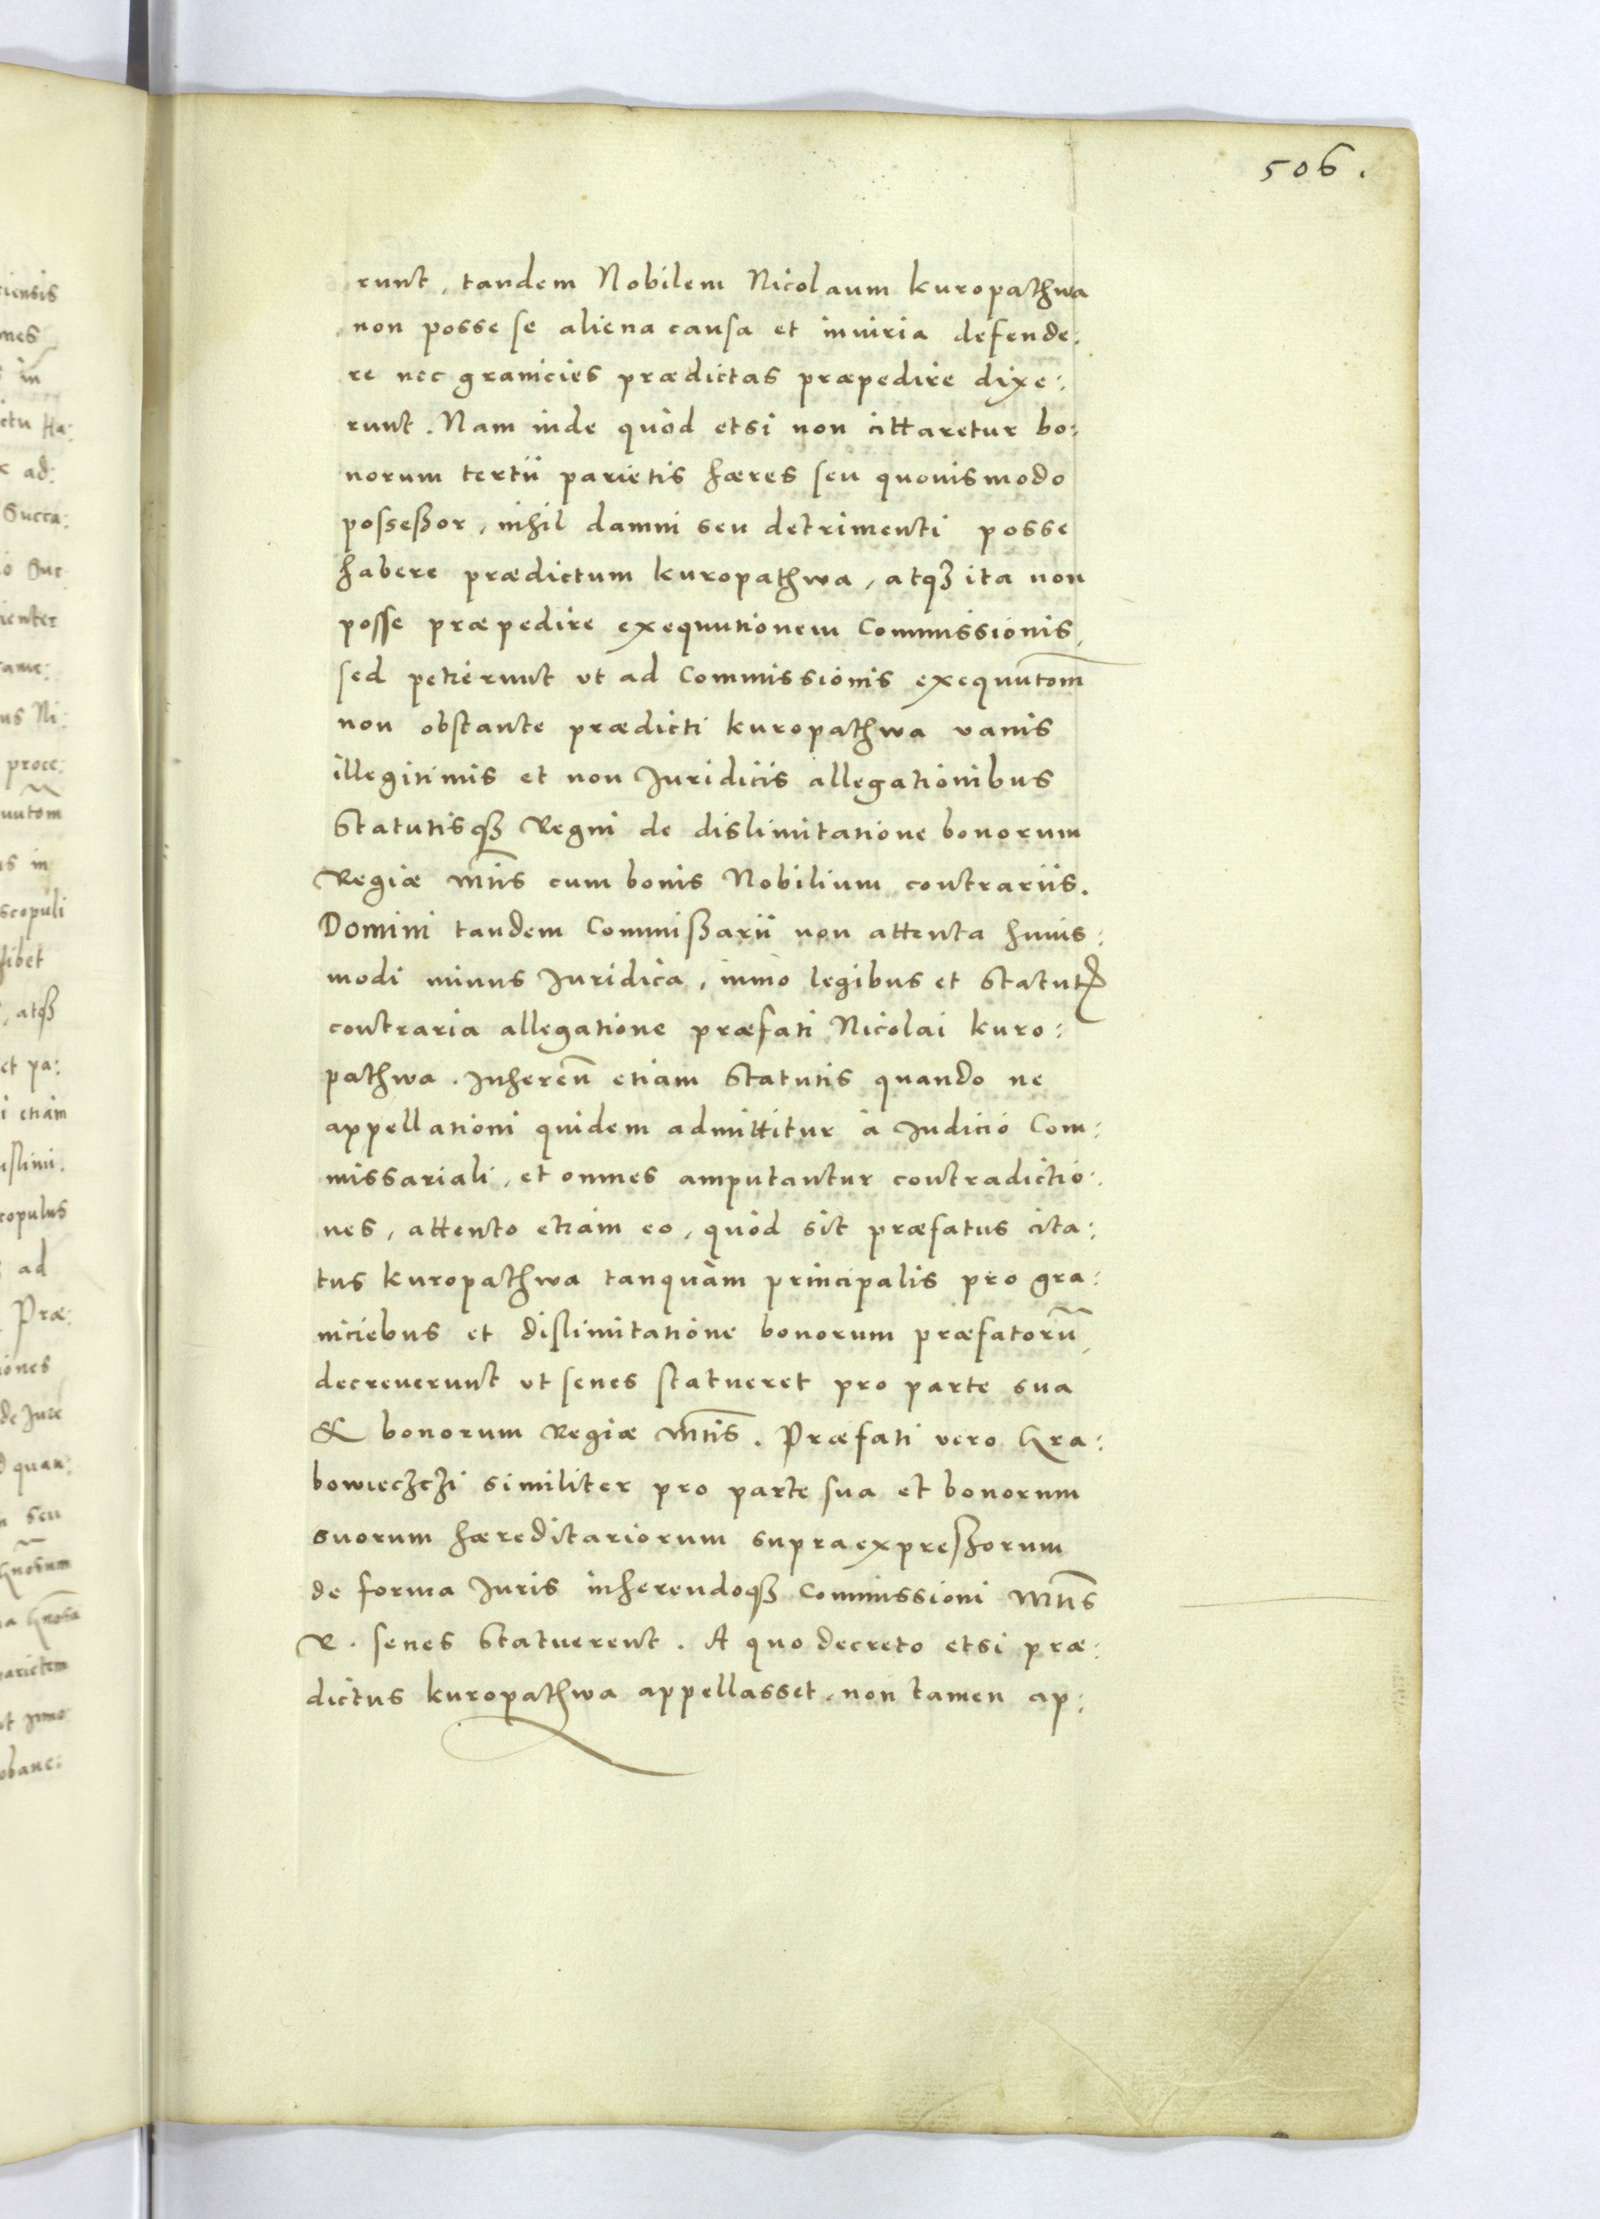 506.
runt, tandem Nobilem Nicolaum Kuropathwa
non posse se aliena causa et iniuria defende:
re nec granicies prædictas præpedire dixe:
runt. Nam inde quòd etsi non cittaretur bo:
norum tertii parietis hæres seu quouismodo
posseßor, nihil damni seu detrimenti posse
habere prædictum Kuropathwa, atqꝫ ita non
posse præpedire exequutionem Commissionis,
sed petierunt vt ad Commissionis exequūtom̄
non obstante prædicti Kuropathwa vanis
illegitimis et non Juridicis allegationibus
Statutisqꝫ Regni de dislimitatione bonorum
Regiæ Mt̄is cum bonis Nobilium contrariis.
Domini tandem Commißarii non attenta huius:
modi minus Juridica, immo legibus et Statutꝭ
contraria allegatione præfati Nicolai Kuro:
pathwa. Inhereñ etiam Statutis quando ne
appellationi quidem admittitur à Judicio Com:
missariali, et omnes amputantur contradictio:
nes, attento etiam eo, quòd sit præfatus cita:
tus Kuropathwa tanquàm principalis pro gra:
niciebus et dislimitatione bonorum præfatorū,
decreuerunt vt senes statueret pro parte sua
& bonorum Regiæ Mt̄is. Præfati vero Gra:
bowieczczi similiter pro parte sua et bonorum
suorum hæreditariorum supraexpreßorum
de forma Juris inherendoqꝫ Commissioni Mt̄is
R. senes statuerent. A quo decreto etsi præ:
dictus Kuropathwa appellasset, non tamen ap: